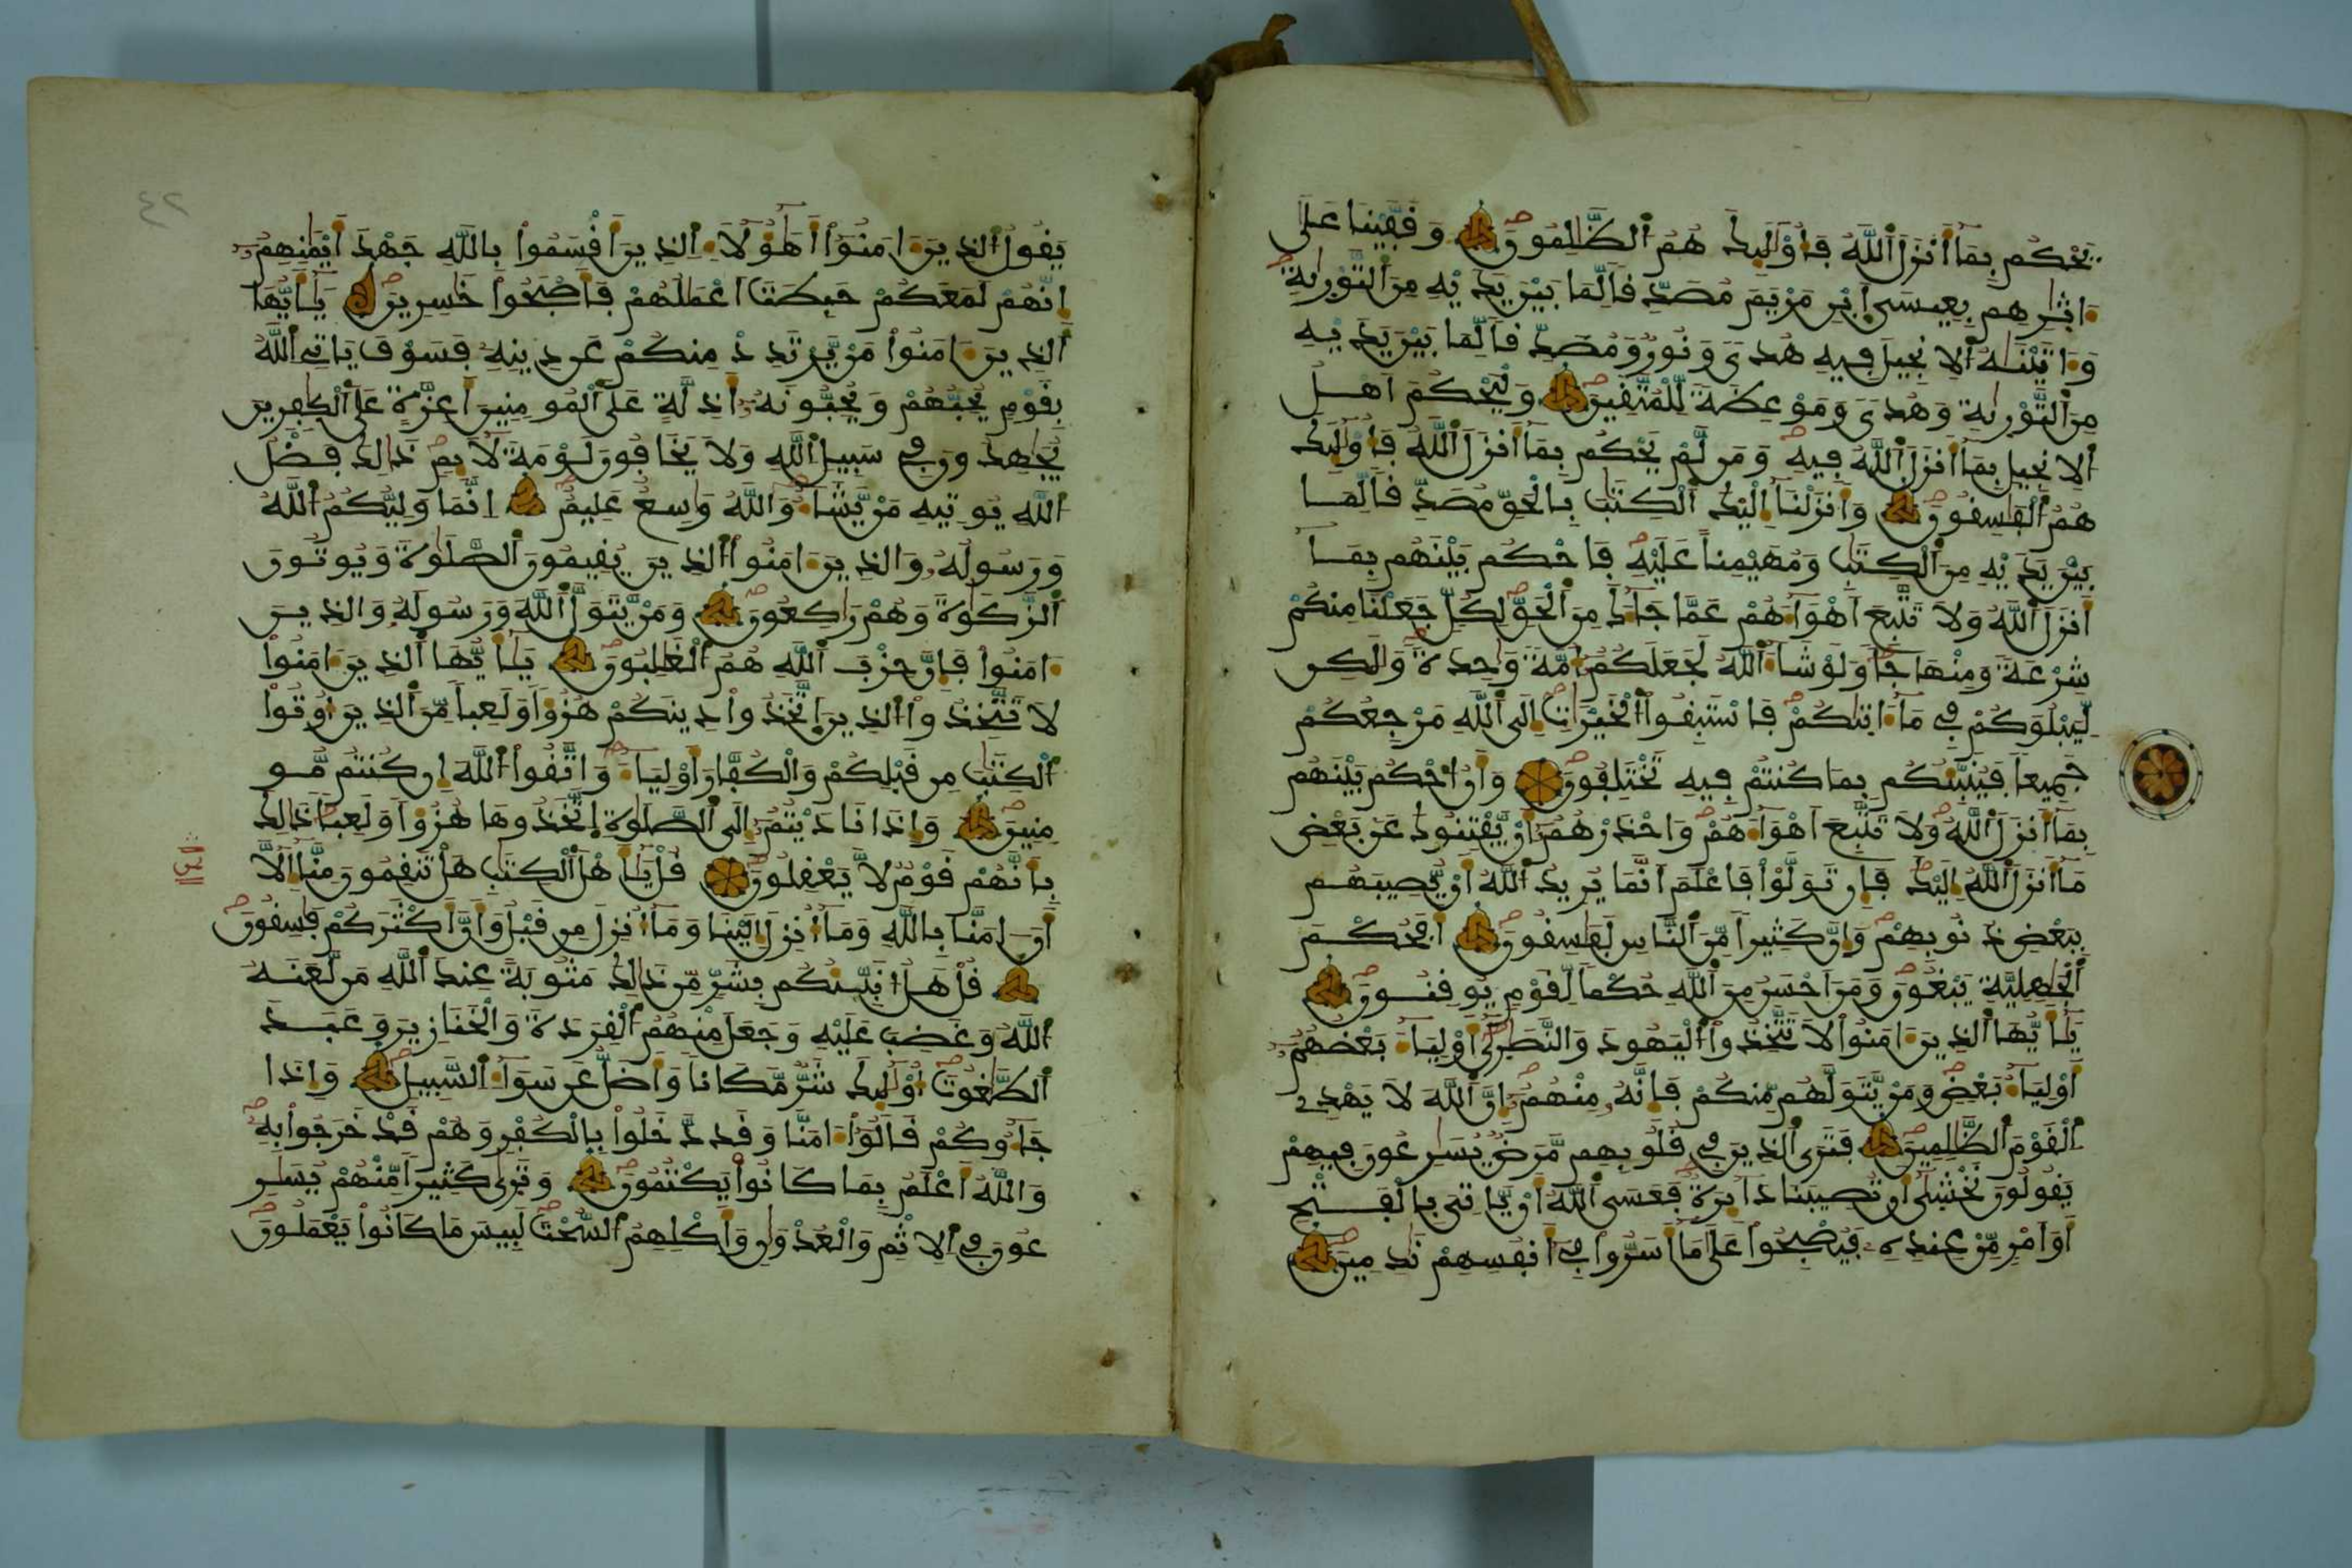 يَحْكُم بِمَا أَنزَلَ ٱللَّهُ فَأُوْلَٰٓئِكَ هُمُ ٱلظَّٰلِمُونَ وَقَفَّيْنَا عَلَىٰ
ءَاثَٰرِهِم بِعِيسَى ٱبْنِ مَرْيَمَ مُصَدِّقاً لِّمَا بَيْنَ يَدَيْهِ مِنَ ٱلتَّوْرَىٰةِ
وَءَاتَيْنَٰهُ ٱلْإِنجِيلَ فِيهِ هُدىً وَنُورٌ وَمُصَدِّقاً لِّمَا بَيْنَ يَدَيْهِ
مِنَ ٱلتَّوْرَىٰةِ وَهُدىً وَمَوْعِظَةً لِّلْمُتَّقِينَ وَلْيَحْكُمَ أَهْلُ
ٱلْإِنجِيلِ بِمَا أَنزَلَ ٱللَّهُ فِيهِ وَمَن لَّمْ يَحْكُم بِمَا أَنزَلَ ٱللَّهُ فَأُوْلَٰٓئِكَ
هُمُ ٱلْفَٰسِقُونَ وَأَنزَلْنَا إِلَيْكَ ٱلْكِتَٰبَ بِالْحَقِّ مُصَدِّقاً لِّمَا
بَيْنَ يَدَيْهِ مِنَ ٱلْكِتَٰبِ وَمُهَيْمِناً عَلَيْهِ فَاحْكُم بَيْنَهُم بِمَا
أَنزَلَ ٱللَّهُ وَلَا تَتَّبِعَ أَهْوَآءَهُمْ عَمَّا جَآءَكَ مِنَ ٱلْحَقِّ لِكُلٍّ جَعَلْنَا مِنكُمْ
شِرْعَةً وَمِنْهَاجاً وَلَوْ شَآءَ ٱللَّهُ لَجَعَلَكُمْ أُمَّةً وَٰحِدَةً وَلَٰكِن
لِّيَبْلُوَكُمْ فِي مَا ءَاتَىٰكُمْ فَاسْتَبِقُوا ٱلْخَيْرَٰتِ إِلَى ٱللَّهِ مَرْجِعُكُمْ
جَمِيعاً فَيُنَبِّئُكُم بِمَا كُنتُمْ فِيهِ تَخْتَلِفُونَ وَأَنُ ٱحْكُم بَيْنَهُم
بِمَا أَنزَلَ ٱللَّهُ وَلَا تَتَّبِعَ أَهْوَآءَهُمْ وَاحْذَرْهُمُ أَنْ يَّفْتِنُوكَ عَنْ بَعْضِ
مَا أَنزَلَ ٱللَّهُ إِلَيْكَ فَإِن تَوَلَّوْا فَاعْلَمَ أَنَّمَا يُرِيدُ ٱللَّهُ أَنْ يُّصِيبَهُم
بِبَعْضِ ذُنُوبِهِمْ وَإِنَّ كَثِيراً مِّنَ ٱلنَّاسِ لَفَٰسِقُونَ أَفَحُكْمَ
ٱلْجَٰهِلِيَّةِ يَبْغُونَ وَمَنَ أَحْسَنُ مِنَ ٱللَّهِ حُكْماً لِّقَوْمٍ يُوقِنُونَ
يَٰٓأَيُّهَا ٱلذِينَ ءَامَنُوا لَا تَتَّخِذُوا ٱلْيَهُودَ وَالنَّصَٰرَىٰ أَوْلِيَآءَ بَعْضُهُمُ
أَوْلِيَآءُ بَعْضٍ وَمَنْ يَّتَوَلَّهُم مِّنكُمْ فَإِنَّهُ مِنْهُمُ إِنَّ ٱللَّهَ لَا يَهْدِي
ٱلْقَوْمَ ٱلظَّٰلِمِينَ فَتَرَى ٱلذِينَ فِي قُلُوبِهِم مَّرَضٌ يُسَٰرِعُونَ فِيهِمْ
يَقُولُونَ نَخْشَىٰ أَن تُصِيبَنَا دَآئِرَةٌ فَعَسَى ٱللَّهُ أَنْ يَّاتِيَ بِالْفَتْحِ
أَوَ أَمْرٍ مِّنْ عِندِهِ فَيُصْبِحُوا عَلَىٰ مَا أَسَرُّوا فِي أَنفُسِهِمْ نَٰدِمِينَ
٤٢
يَقُولُ ٱلذِينَ ءَامَنُوا أَهَٰٓؤُلَآءِ ٱلذِينَ أَقْسَمُوا بِاللَّهِ جَهْدَ أَيْمَٰنِهِمُ
إِنَّهُمْ لَمَعَكُمْ حَبِطَتَ أَعْمَٰلُهُمْ فَأَصْبَحُوا خَٰسِرِينَ يَٰٓأَيُّهَا
ٱلذِينَ ءَامَنُوا مَنْ يَّرْتَدِدْ مِنكُمْ عَن دِينِهِ فَسَوْفَ يَاتِي ٱللَّهُ
بِقَوْمٍ يُحِبُّهُمْ وَيُحِبُّونَهُ أَذِلَّةٍ عَلَى ٱلْمُومِنِينَ أَعِزَّةٍ عَلَى ٱلْكَٰفِرِينَ
يُجَٰهِدُونَ فِي سَبِيلِ ٱللَّهِ وَلَا يَخَافُونَ لَوْمَةَ لَآئِمٍ ذَٰلِكَ فَضْلُ
ٱللَّهِ يُوتِيهِ مَنْ يَّشَآءُ وَاللَّهُ وَٰسِعٌ عَلِيمٌ إِنَّمَا وَلِيُّكُمُ ٱللَّهُ
وَرَسُولُهُ وَالذِينَ ءَامَنُوا ٱلذِينَ يُقِيمُونَ ٱلصَّلَوٰةَ وَيُوتُونَ
ٱلزَّكَوٰةَ وَهُمْ رَٰكِعُونَ وَمَنْ يَّتَوَلَّ ٱللَّهَ وَرَسُولَهُ وَالذِينَ
ءَامَنُوا فَإِنَّ حِزْبَ ٱللَّهِ هُمُ ٱلْغَٰلِبُونَ يَٰٓأَيُّهَا ٱلذِينَ ءَامَنُوا
لَا تَتَّخِذُوا ٱلذِينَ ٱتَّخَذُوا دِينَكُمْ هُزُؤاً وَلَعِباً مِّنَ ٱلذِينَ أُوتُوا
ٱلْكِتَٰبَ مِن قَبْلِكُمْ وَالْكُفَّارَ أَوْلِيَآءَ وَاتَّقُوا ٱللَّهَ إِن كُنتُم مُّو
مِنِينَ وَإِذَا نَادَيْتُمُ إِلَى ٱلصَّلَوٰةِ ٱتَّخَذُوهَا هُزُؤاً وَلَعِباً ذَٰلِكَ
بِأَنَّهُمْ قَوْمٌ لَّا يَعْقِلُونَ قُلْ يَٰٓأَهْلَ ٱلْكِتَٰبِ هَلْ تَنقِمُونَ مِنَّا إِلَّا
أَنَ ءَامَنَّا بِاللَّهِ وَمَا أُنزِلَ إِلَيْنَا وَمَا أُنزِلَ مِن قَبْلُ وَأَنَّ أَكْثَرَكُمْ فَٰسِقُونَ
قُلْ هَلُ أُنَبِّئُكُم بِشَرٍّ مِّن ذَٰلِكَ مَثُوبَةً عِندَ ٱللَّهِ مَن لَّعَنَهُ
ٱللَّهُ وَغَضِبَ عَلَيْهِ وَجَعَلَ مِنْهُمُ ٱلْقِرَدَةَ وَالْخَنَازِيرَ وَعَبَدَ
ٱلطَّٰغُوتَ أُوْلَٰٓئِكَ شَرٌّ مَّكَاناً وَأَضَلُّ عَن سَوَآءِ ٱلسَّبِيلِ وَإِذَا
جَآءُوكُمْ قَالُوا ءَامَنَّا وَقَد دَّخَلُوا بِالْكُفْرِ وَهُمْ قَدْ خَرَجُوا بِهِ
وَاللَّهُ أَعْلَمُ بِمَا كَانُوا يَكْتُمُونَ وَتَرَىٰ كَثِيراً مِّنْهُمْ يُسَٰرِ
عُونَ فِي ٱلْإِثْمِ وَالْعُدْوَٰنِ وَأَكْلِهِمُ ٱلسُّحْتَ لَبِيسَ مَا كَانُوا يَعْمَلُونَ